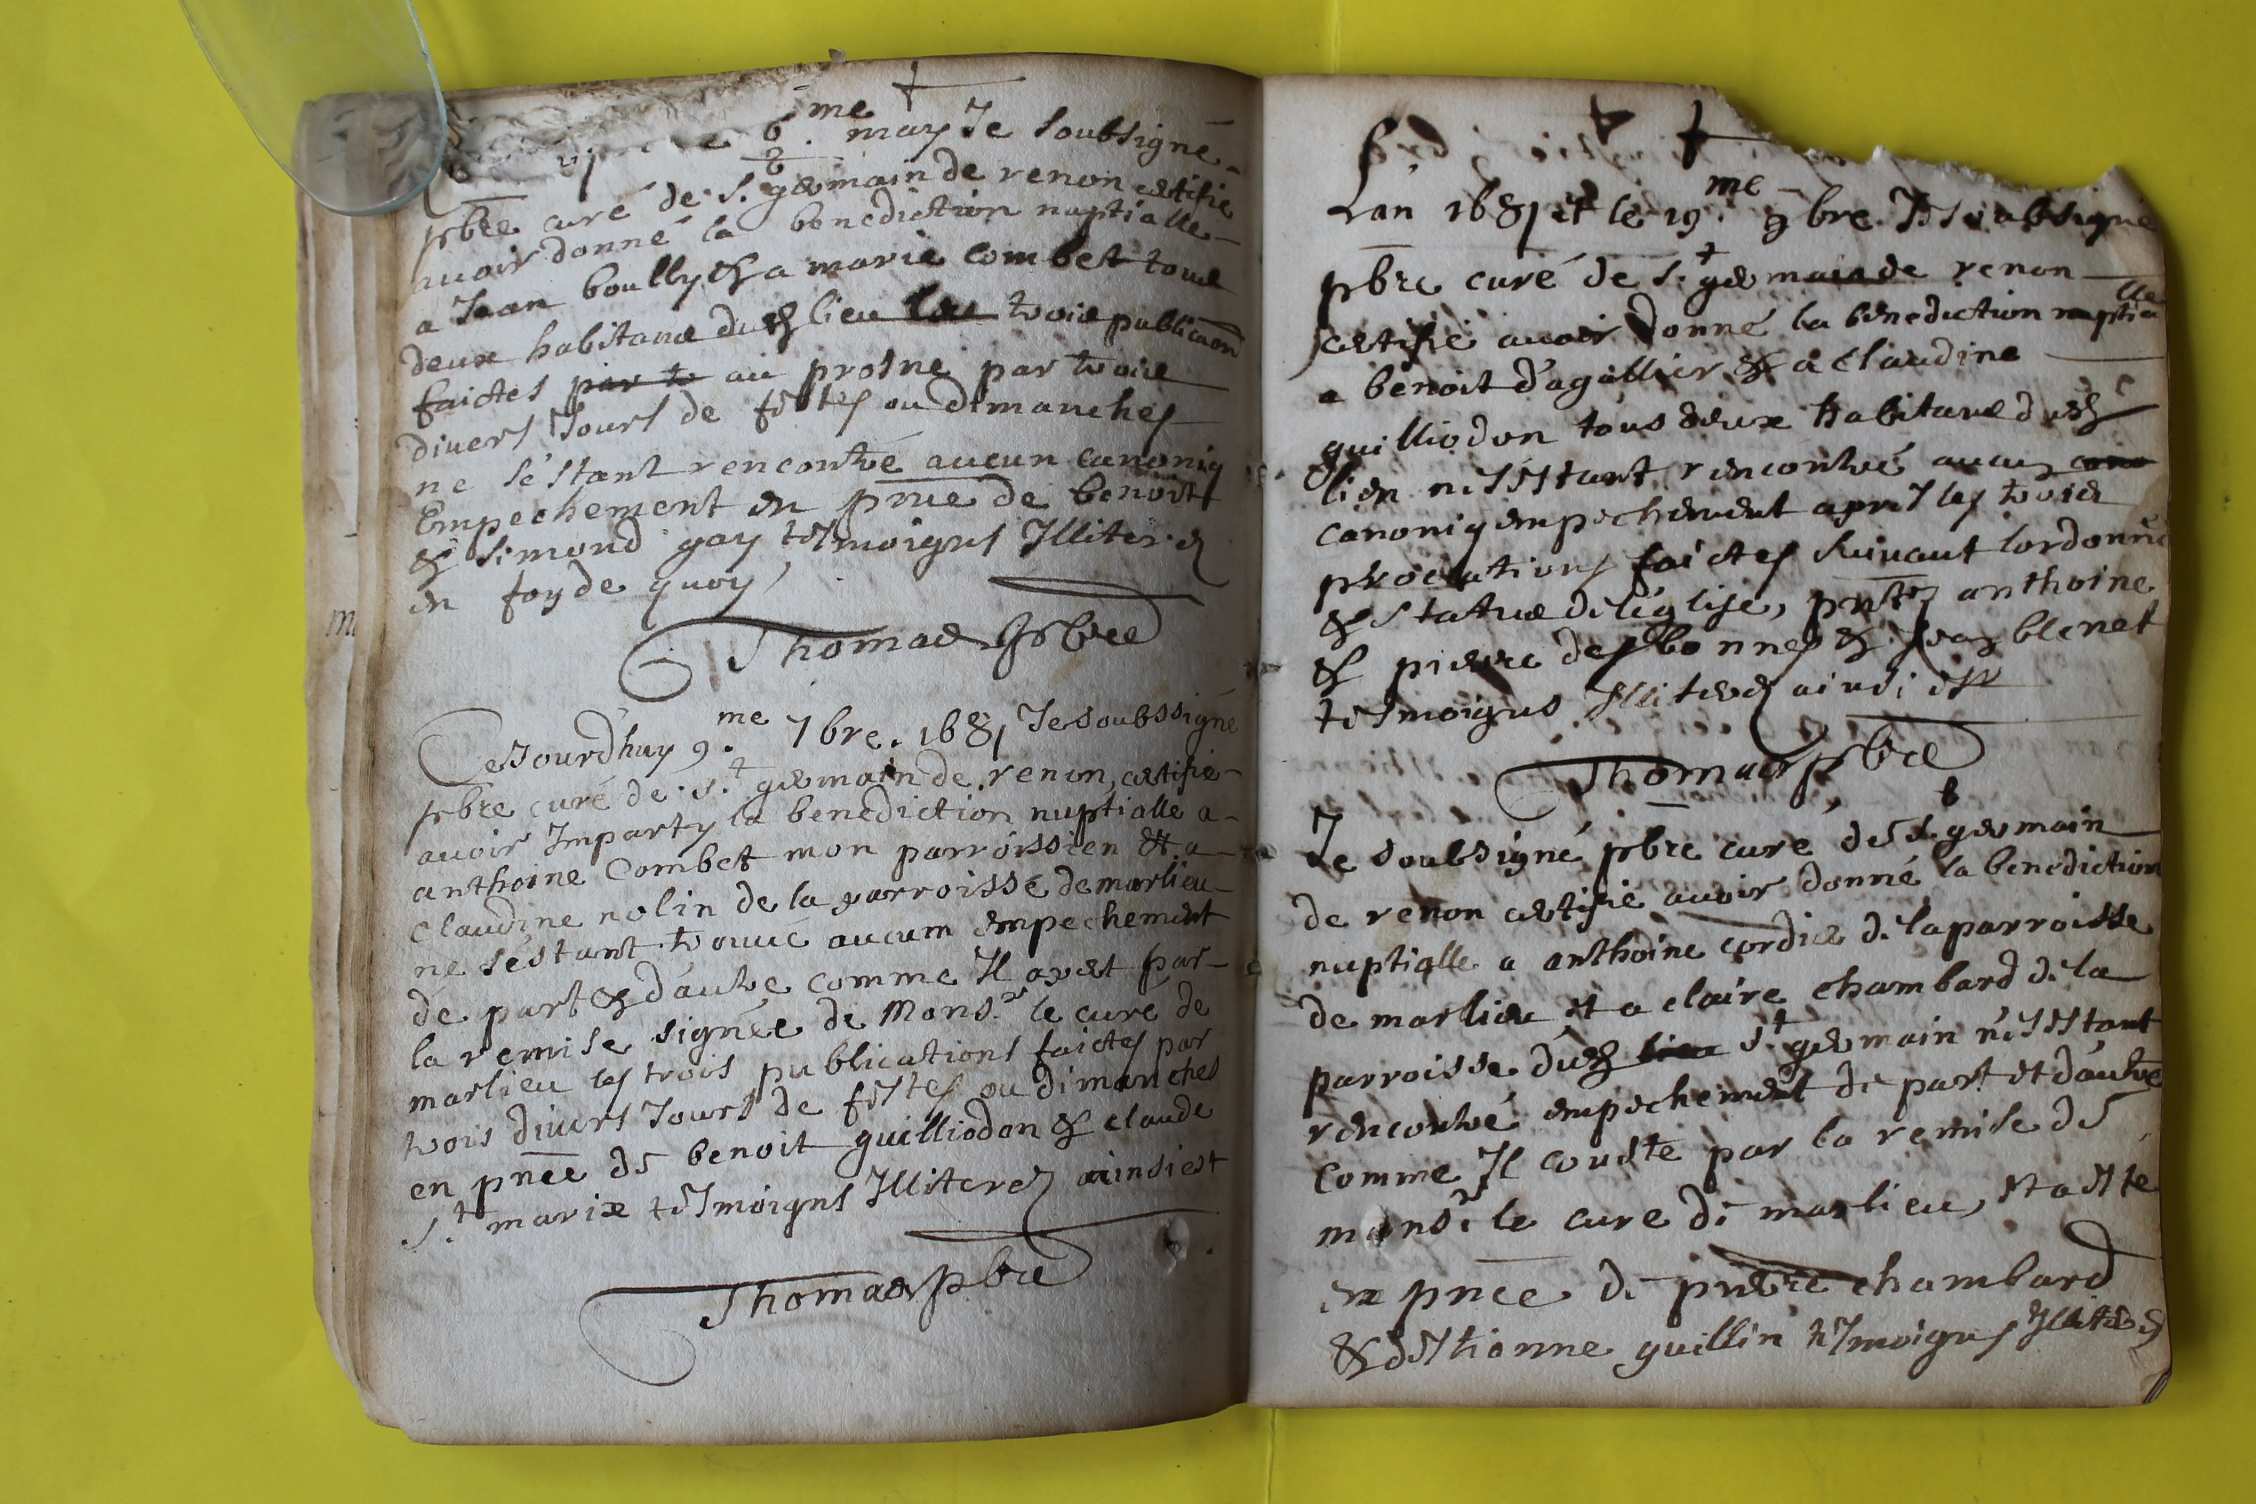 6.me may Je soubsigné
pbre curé de S.t germain de renon certifie
avoir donné la benediction nuptialle
a Jean boully & a marie combet tous
deux habitans dud lieu les trois publicaon
faictes par tr au prosne par trois
divers Jours de festes ou dimanches
ne s'éstant rencontré aucun canoniq
Empechement en pnce de benoist
& Simond gay tesmoigns Illiterez
en foy de quoy
Thomas pbre
Cejourd'huy 9.me 7bre. 1681 Je soubssigné
pbre curé de S.t germain de renon, certifie
avoir Imparty la benediction nuptialle a
anthoine Combet mon parroissien et a
claudine nolin de la parroisse de marlieu
ne s'éstant trouvé aucum empechement
de part & d'autre comme Il apert par
la remise signée de Mons.r le curé de
marlieu les trois publications faictes par
trois divers Jours de festes ou dimanches
en pnce de benoit guilliodon & claude
S.t marie tesmoigns Illiterez ainsi est
Thomas pbre
L'an 1681 et le 19.me 9bre. Je soubsigné
pbre curé de S.t germain de renon
certifie avoir donné la benediction nuptialle
a benoit d'agallier & a claudine
guilliodon tous deux habitans dud
lieu ne s'estant rencontré aucun cano
canoniq empechement apres les trois
proclations faictes suivant lordonnce
& status de l'église, pntz anthoine
& pierre desbonnes & Jean blenet
tesmoigns Illiterez ainsi est
Thomas pbre
Je soubsigné pbre curé de S.t germain
de renon certifie avoir donné la benediction
nuptialle a anthoine cordier de la parroisse
de marlieu et a claire chambard de la
parroisse dud lieu S.t germain n'estant
rencontré empechement de part et d'autre
comme Il conste par la remise de
mons.r le curé de marlieu, et a este
en pnce de pierre chambard
& d'estienne guillin tesmoigns Illiterez